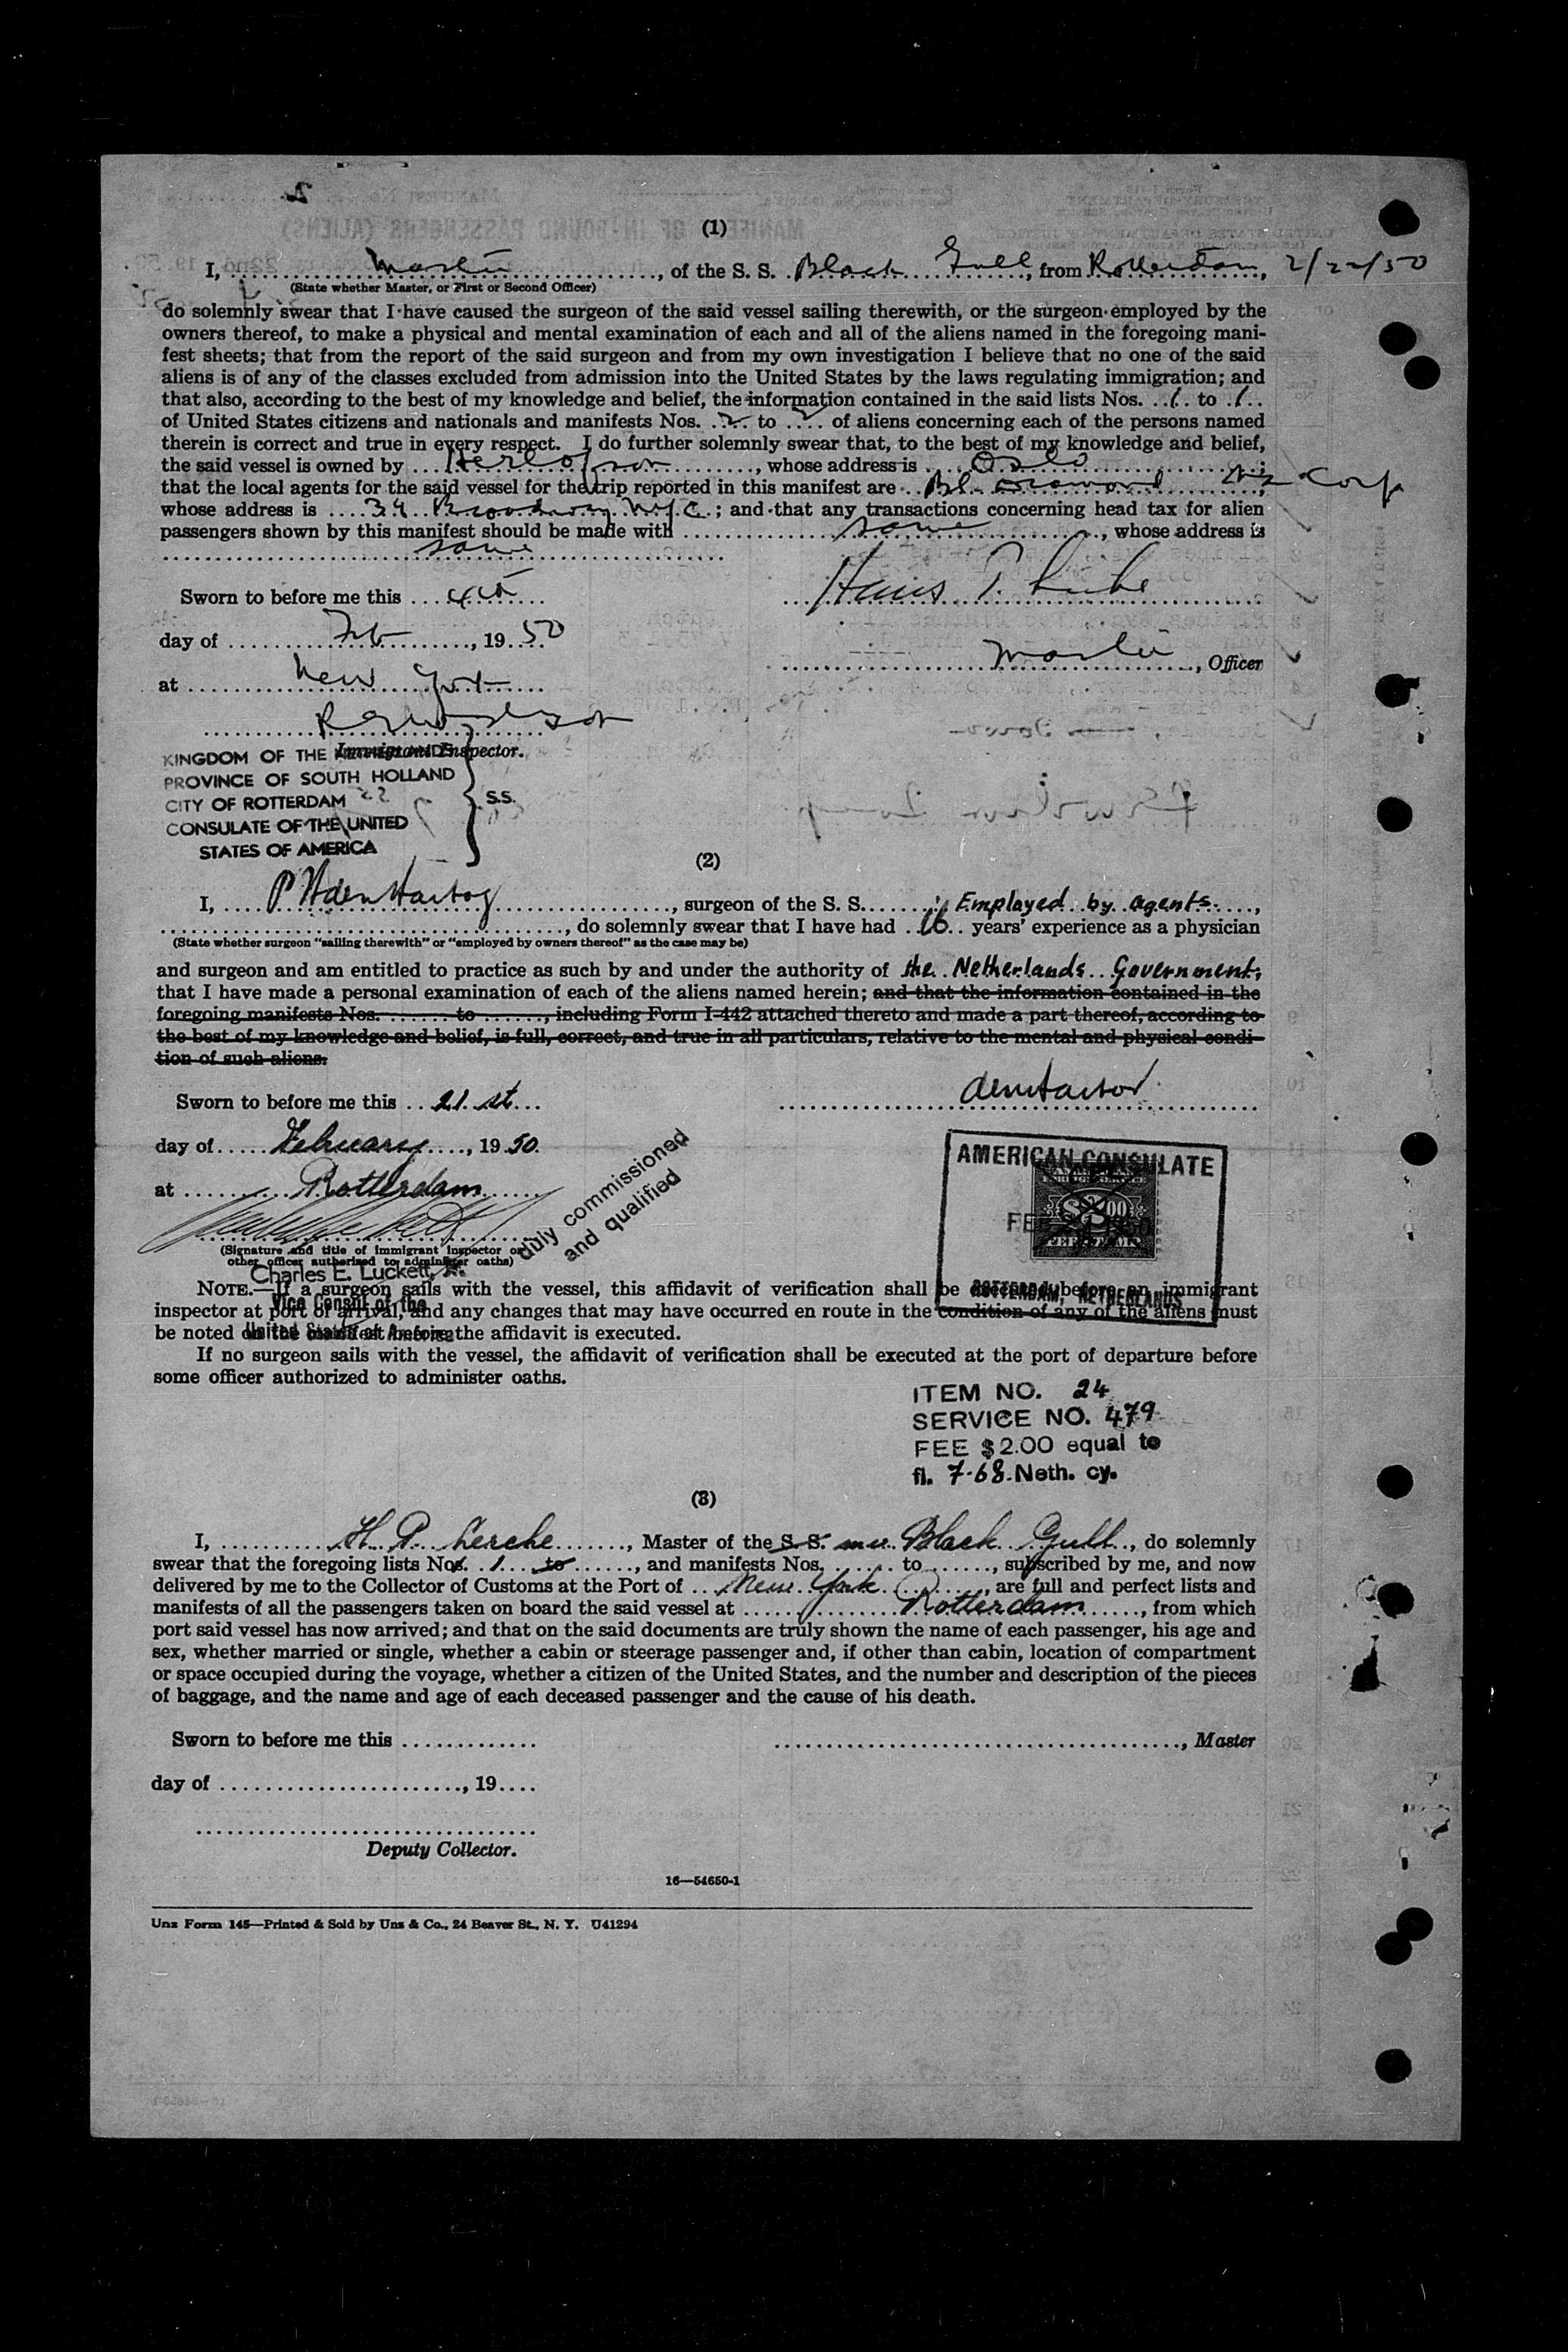 (1)
I, Master, of the S. S. Black Gull, from Rotterdam, 2/22/50
(State whether Master, or First or Second Officer)
do solemnly swear that I have caused the surgeon of the said vessel sailing therewith, or the surgeon employed by the
owners thereof, to make a physical and mental examination of each and all of the aliens named in the foregoing mani-
fest sheets; that from the report of the said surgeon and from my own investigation I believe that no one of the said
aliens is of any of the classes excluded from admission into the United States by the laws regulating immigration; and
that also, according to the best of my knowledge and belief, the information contained in the said lists Nos. 1 to 1
of United States citizens and nationals and manifests Nos. 2 to 2 of aliens concerning each of the persons named
therein is correct and true in every respect. I do further solemnly swear that, to the best of my knowledge and belief,
the said vessel is owned by Herlofson, whose address is Oslo;
that the local agents for the said vessel for the trip reported in this manifest are Bl. Diamond Corp,
whose address is 39 Broadway N.Y.C.; and that any transactions concerning head tax for alien
passengers shown by this manifest should be made with same, whose address is
same
Sworn to before me this
Hans P.
day of Feb, 1950
Master, Officer
at New York
Immigrant Inspector.
KINGDOM OF THE NETHERLANDS
PROVINCE OF SOUTH HOLLAND
CITY OF ROTTERDAM S.S.
CONSULATE OF THE UNITED
STATES OF AMERICA
(2)
I, P denHartog, surgeon of the S. S. Employed by agents,
, do solemnly swear that I have had 16 years' experience as a physician
(State whether surgeon "sailing therewith" or "employed by owners thereof" as the case may be)
and surgeon and am entitled to practice as such by and under the authority of the Netherlands Government,
that I have made a personal examination of each of the aliens named herein; and that the information contained in the
foregoing manifests Nos. ........ to ......, including Form I-442 attached thereto and made a part thereof, according to
the best of my knowledge and belief, is full, correct, and true in all particulars, relative to the mental and physical condi-
tion of such aliens.
Sworn to before me this 21 st
denHartog
day of February, 1950.
at Rotterdam
duly commissioned
and qualified
AMERICAN CONSULATE
FOREIGN SERVICE
$2.00
FEE STAMP
ROTTERDAM, NETHERLANDS
(Signature and title of immigrant inspector or
other officer authorized to administer oaths)
Charles E. Luckett, Jr.
Vice Consul of the
United States of America
NOTE.—If a surgeon sails with the vessel, this affidavit of verification shall be executed before an immigrant
inspector at port of arrival, and any changes that may have occurred en route in the condition of any of the aliens must
be noted on the manifest before the affidavit is executed.
If no surgeon sails with the vessel, the affidavit of verification shall be executed at the port of departure before
some officer authorized to administer oaths.
ITEM NO. 24
SERVICE NO. 479
FEE $2.00 equal to
fl. 7.68 Neth. cy.
(3)
I, H. P. Lerche, Master of the S. S. m.v. Black Gull, do solemnly
swear that the foregoing lists Nos. 1 to ......, and manifests Nos. ...... to ......, subscribed by me, and now
delivered by me to the Collector of Customs at the Port of New York, are full and perfect lists and
manifests of all the passengers taken on board the said vessel at Rotterdam, from which
port said vessel has now arrived; and that on the said documents are truly shown the name of each passenger, his age and
sex, whether married or single, whether a cabin or steerage passenger and, if other than cabin, location of compartment
or space occupied during the voyage, whether a citizen of the United States, and the number and description of the pieces
of baggage, and the name and age of each deceased passenger and the cause of his death.
Sworn to before me this ..............
, Master
day of ........................, 19....
Deputy Collector.
16—54650-1
Unz Form 145—Printed & Sold by Unz & Co., 24 Beaver St., N. Y. U41294